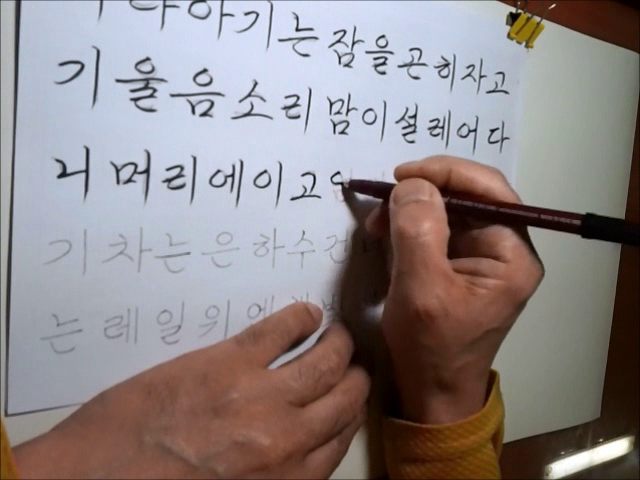 아기는잠을곤히자고
기울음소리맘이설레어다
니머리에이고
기차는은하수건
는레일위에